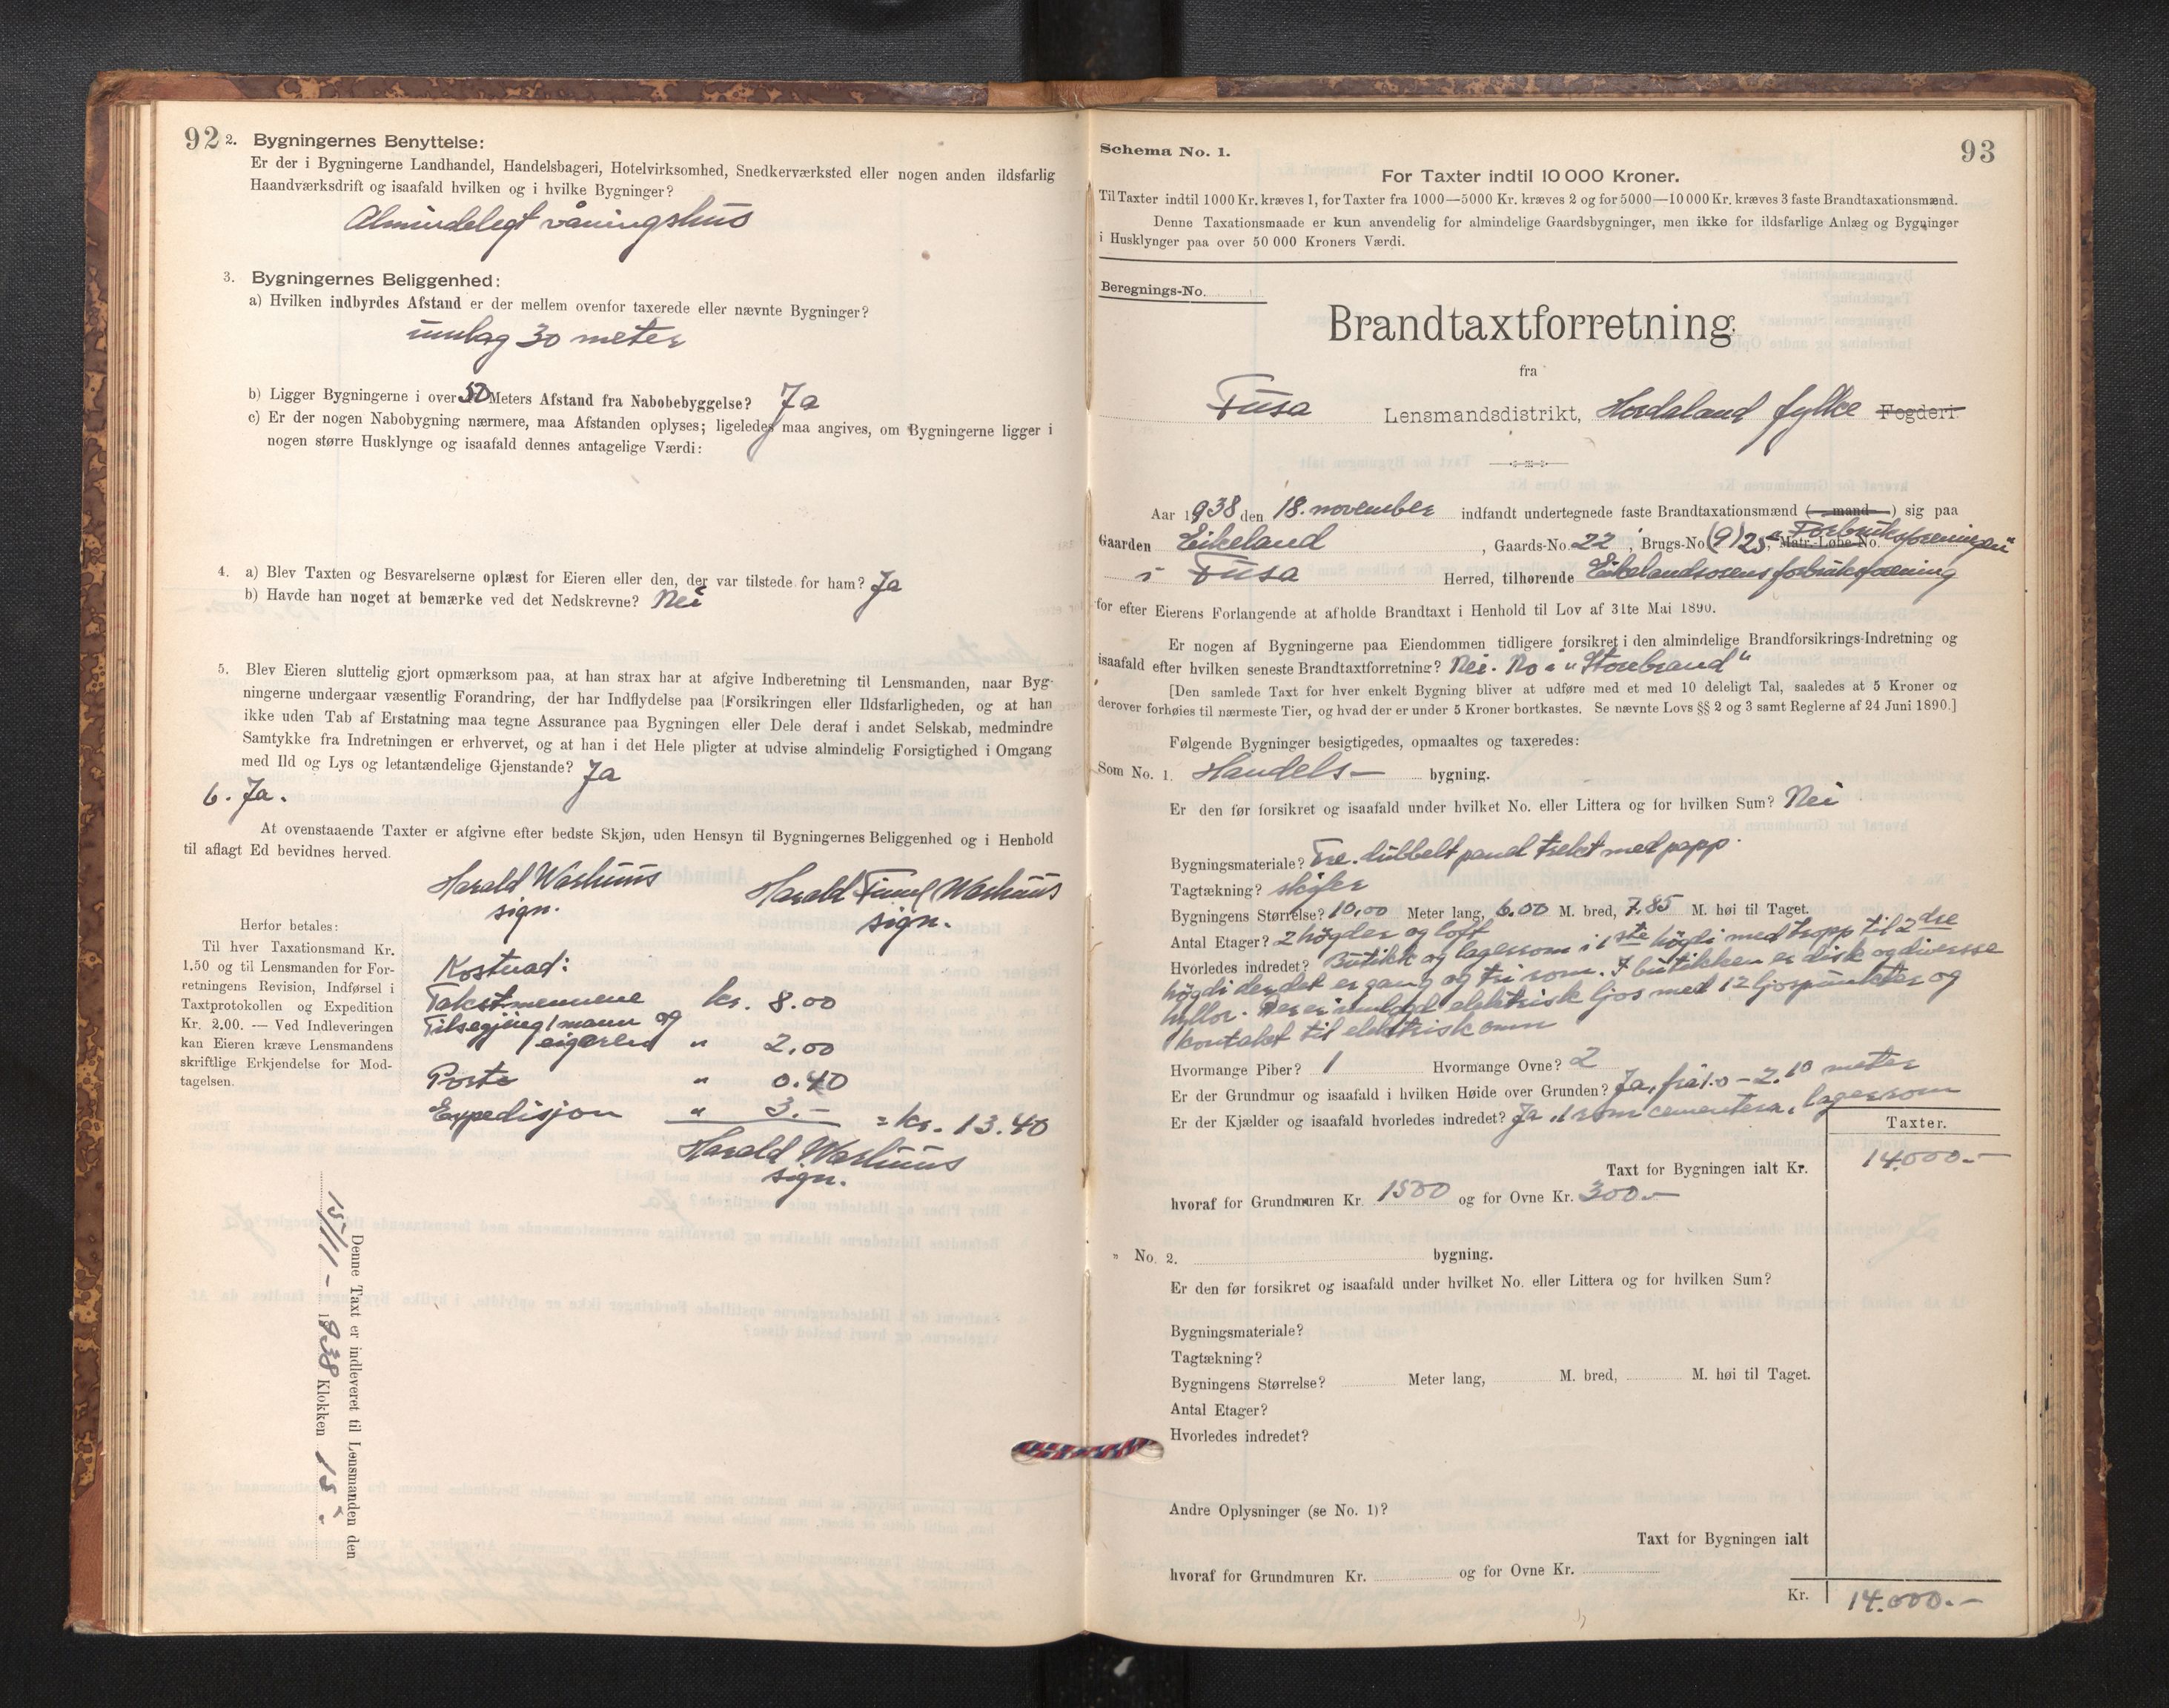 92
2. Bygningernes Benyttelse:
Er der i Bygningerne Landhandel, Handelsbageri, Hotelvirksomhed, Snedkerværksted eller nogen anden ildsfarlig
Haandværksdrift og isaafald hvilken og i hvilke Bygninger?
Almindelegt våningshus
3. Bygningernes Beliggenhed:
a) Hvilken indbyrdes Afstand er der mellem ovenfor taxerede eller nævnte Bygninger?
umlag 30 meter
b) Ligger Bygningerne i over 50 Meters Afstand fra Nabobebyggelse? Ja
c) Er der nogen Nabobygning nærmere, maa Afstanden oplyses; ligeledes maa angives, om Bygningerne ligger i
nogen større Husklynge og isaafald dennes antagelige Værdi:
4. a) Blev Taxten og Besvarelserne oplæst for Eieren eller den, der var tilstede for ham? Ja
b) Havde han noget at bemærke ved det Nedskrevne? Nei
5. Blev Eieren sluttelig gjort opmærksom paa, at han strax har at afgive Indberetning til Lensmanden, naar Byg-
ningerne undergaar væsentlig Forandring, der har Indflydelse paa Forsikringen eller Ildsfarligheden, og at han
ikke uden Tab af Erstatning maa tegne Assurance paa Bygningen eller Dele deraf i andet Selskab, medmindre
Samtykke fra Indretningen er erhvervet, og at han i det Hele pligter at udvise almindelig Forsigtighed i Omgang
med Ild og Lys og letantændelige Gjenstande? Ja
6. Ja.
At ovenstaaende Taxter er afgivne efter bedste Skjøn, uden Hensyn til Bygningernes Beliggenhed og i Henhold
til aflagt Ed bevidnes herved.
Harald Warhuus Harald Warhuus
sign. sign.
Herfor betales:
Til hver Taxationsmand Kr.
1.50 og til Lensmanden for For-
retningens Revision, Indførsel i
Taxtprotokollen og Expedition
Kr. 2,00. — Ved Indleveringen
kan Eieren kræve Lensmandens
skriftlige Erkjendelse for Mod-
tagelsen.
Kostnad:
Takstmennene kr. 8.00
Tilsegjing/mann og
eigeren " 2.00
Porto " 0.40
Expedisjon " 3.- = kr. 13.40
Harald Warhuus
sign.
Denne Taxt er indleveret til Lensmanden den
15/11 - 1938 Klokken 15.
Schema No. 1. 93
For Taxter indtil 10 000 Kroner.
Til Taxter indtil 1000 Kr. kræves 1, for Taxter fra 1000—5000 Kr. kræves 2 og for 5000—10 000 Kr. kræves 3 faste Brandtaxationsmænd.
Denne Taxationsmaade er kun anvendelig for almindelige Gaardsbygninger, men ikke for ildsfarlige Anlæg og Bygninger
i Husklynger paa over 50 000 Kroners Værdi.
Beregnings-No.
Brandtaxtforretning
fra
Fusa Lensmandsdistrikt, Hordaland fylke Fogderi
Aar 1938 den 18. november indfandt undertegnede faste Brandtaxationsmænd (mand) sig paa
Gaarden Eikeland, Gaards-No. 22, Brugs-No (9) 25, Matr.-Løbe-No. "Forbruksforeningen"
i Fusa Herred, tilhørende Eikelandsosens forbruksforening
for efter Eierens Forlangende at afholde Brandtaxt i Henhold til Lov af 31te Mai 1890.
Er nogen af Bygningerne paa Eiendommen tidligere forsikret i den almindelige Brandforsikrings-Indretning og
isaafald efter hvilken seneste Brandtaxtforretning? Nei. No i "Storebrand"
[Den samlede Taxt for hver enkelt Bygning bliver at udføre med et med 10 deleligt Tal, saaledes at 5 Kroner og
derover forhøies til nærmeste Tier, og hvad der er under 5 Kroner bortkastes. Se nævnte Lovs §§ 2 og 3 samt Reglerne af 24 Juni 1890.]
Følgende Bygninger besigtigedes, opmaaltes og taxeredes:
Som No. 1. Handels- bygning.
Er den før forsikret og isaafald under hvilket No. eller Littera og for hvilken Sum? Nei
Bygningsmateriale? Tre. dubbelt panel trekt med papp.
Tagtækning? skifer
Bygningens Størrelse? 10,00 Meter lang, 6.00 M. bred, 7.85 M. høi til Taget.
Antal Etager? 2 høgder og loft
Hvorledes indredet? Butikk og lagerrom i 1ste høgdi med tropp til 2dre
høgdi der det er gang og tri rom. I butikken er disk og diversse
hyllor. Der er innlagt elektrisk ljos med 12 ljospunkter og
1 kontakt til elektrisk omn
Hvormange Piber? 1 Hvormange Ovne? 2
Er der Grundmur og isaafald i hvilken Høide over Grunden? Ja, frå 1.0 - 2.10 meter
Er der Kjælder og isaafald hvorledes indredet? Ja, 1 rom cementera, lagerrom
Taxter.
Taxt for Bygningen ialt Kr. 14.000.-
hvoraf for Grundmuren Kr. 1500 og for Ovne Kr. 300.-
" No. 2. bygning.
Er den før forsikret og isaafald under hvilket No. eller Littera og for hvilken Sum?
Bygningsmateriale?
Tagtækning?
Bygningens Størrelse? Meter lang, M. bred, M. høi til Taget.
Antal Etager?
Hvorledes indredet?
Andre Oplysninger (se No. 1)?
Taxt for Bygningen ialt
hvoraf for Grundmuren Kr. og for Ovne Kr.
Kr. 14.000.-